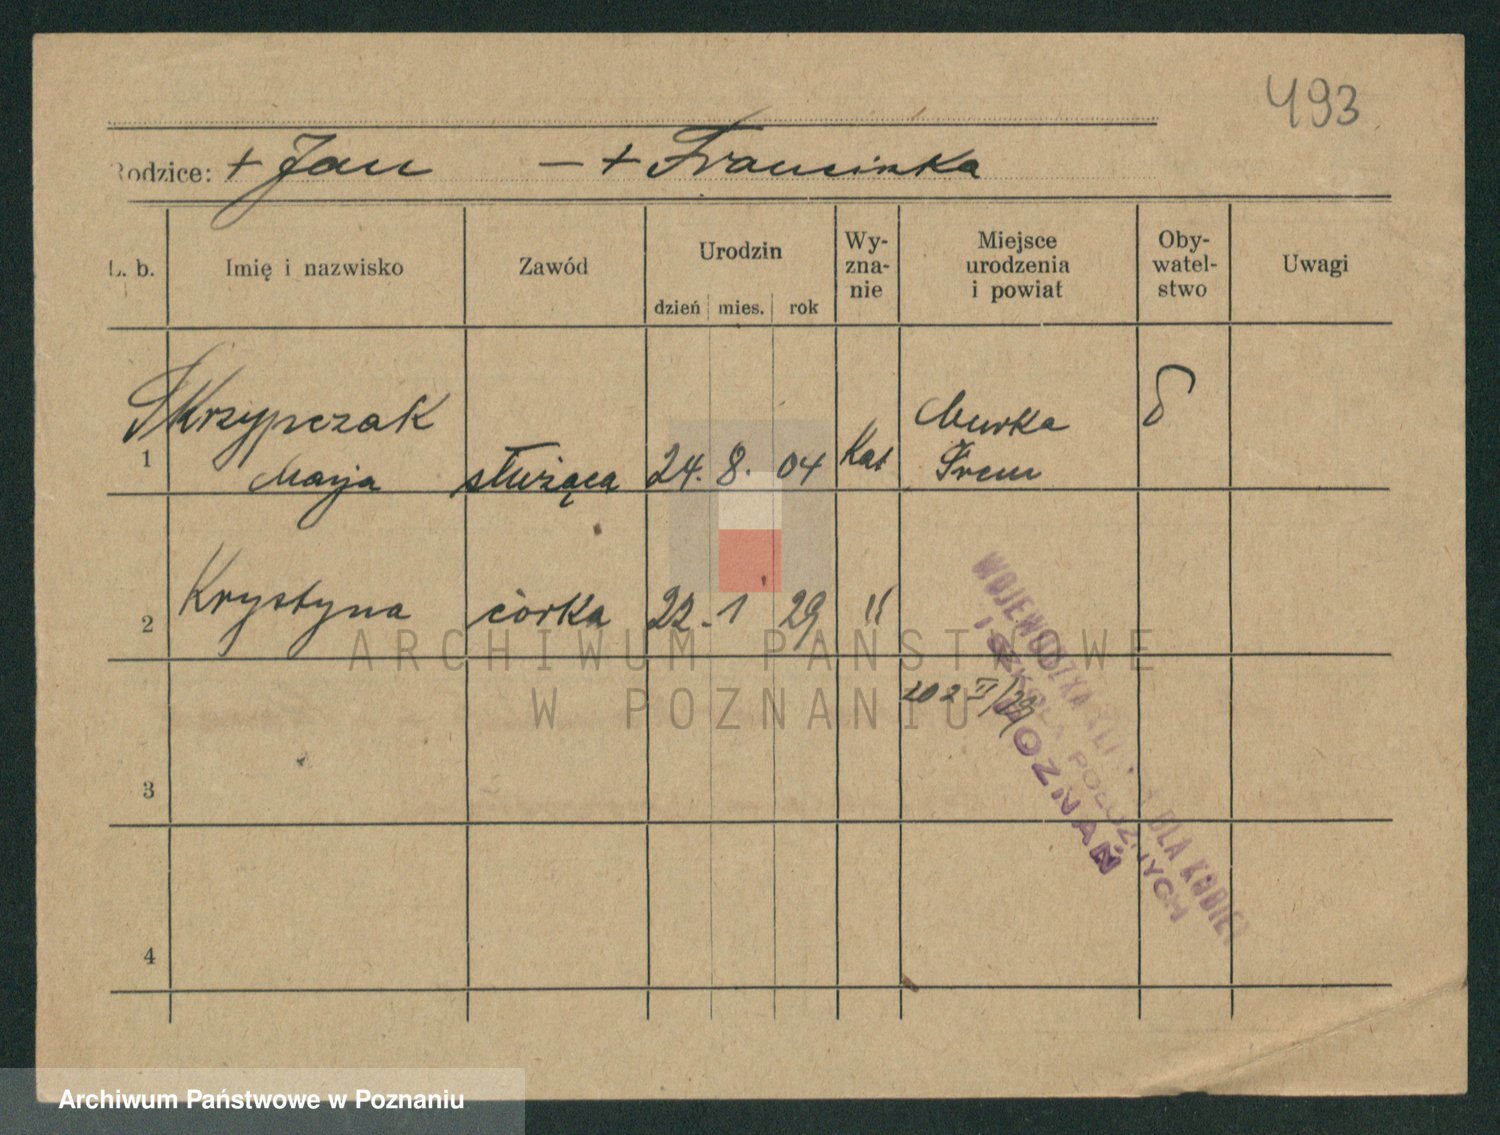 493
Rodzice: + Jan — + Franciszka
L. b.
Imię i nazwisko
Zawód
Urodzin
dzień mies. rok
Wy-
zna-
nie
Miejsce
urodzenia
i powiat
Oby-
watel-
stwo
Uwagi
1
Skrzypczak
Marja
służąca
24. 8. 04
Kat
Murka
Śrem
2
Krystyna
córka
22. 1 29
"
202 II/29
WOJEWÓDZKA KLINIKA DLA KOBIET
I SZKOŁA POŁOŻNYCH
POZNAŃ
3
4
ARCHIWUM PAŃSTWOWE
W POZNANIU
Archiwum Państwowe w Poznaniu